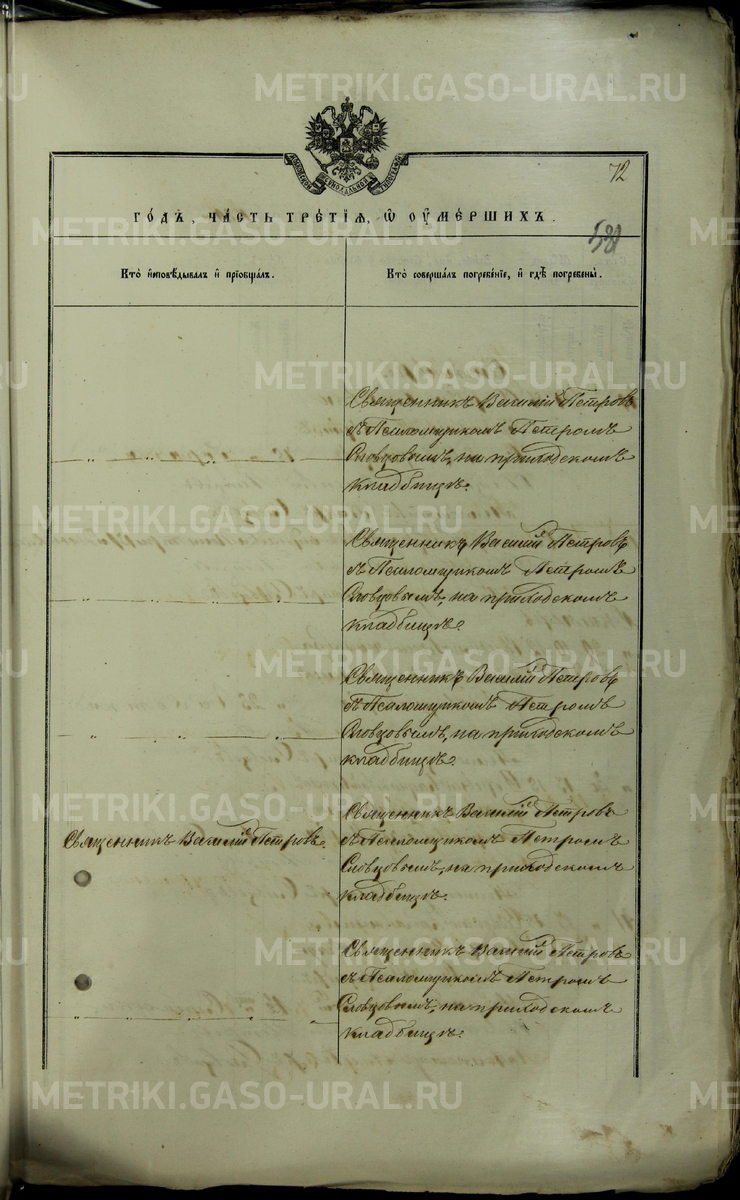 72
МОСКОВСКОЙ СѴНОДАЛЬНОЙ ТИПОГРАФІИ
го́дъ, ча́сть тре́тїѧ, ѡ҆ ᲂу҆ме́ршихъ.
538
Кто̀ и҆сповѣ́дывалъ и҆ прїѡбща́лъ.
Кто̀ соверша́лъ погребе́нїе, и҆ гдѣ̀ погребены̀.
Священникъ Василій Петровъ
съ Псаломщикомъ Петромъ
Словцовымъ, на приходскомъ
кладбищѣ.
Священникъ Василій Петровъ
съ Псаломщикомъ Петромъ
Словцовымъ, на приходскомъ
кладбищѣ.
Священникъ Василій Петровъ
съ Псаломщикомъ Петромъ
Словцовымъ, на приходскомъ
кладбищѣ.
Священникъ Василій Петровъ.
Священникъ Василій Петровъ
съ Псаломщикомъ Петромъ
Словцовымъ, на приходскомъ
кладбищѣ.
Священникъ Василій Петровъ
съ Псаломщикомъ Петромъ
Словцовымъ, на приходскомъ
кладбищѣ.
METRIKI.GASO-URAL.RU